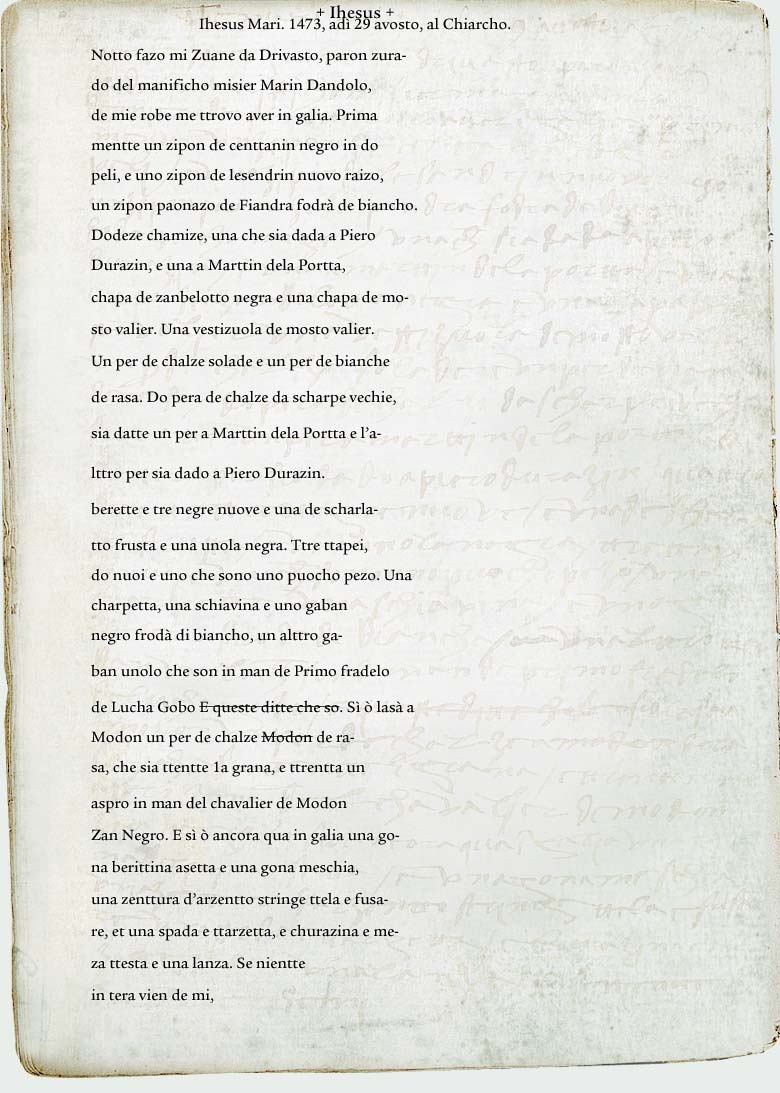 + Ihesus +
Ihesus Mari. 1473, adì 29 avosto, al Chiarcho.
Notto fazo mi Zuane da Drivasto, paron zura-
do del manificho misier Marin Dandolo,
de mie robe me ttrovo aver in galia. Prima
mentte un zipon de centtanin negro in do
peli, e uno zipon de lesendrin nuovo raizo,
un zipon paonazo de Fiandra fodrà de biancho.
Dodeze chamize, una che sia dada a Piero
Durazin, e una a Marttin dela Portta,
chapa de zanbelotto negra e una chapa de mo-
sto valier. Una vestizuola de mosto valier.
Un per de chalze solade e un per de bianche
de rasa. Do pera de chalze da scharpe vechie,
sia datte un per a Marttin dela Portta e l'a-
lttro per sia dado a Piero Durazin.
berette e tre negre nuove e una de scharla-
tto frusta e una unola negra. Ttre ttapei,
do nuoi e uno che sono uno puocho pezo. Una
charpetta, una schiavina e uno gaban
negro frodà di biancho, un alttro ga-
ban unolo che son in man de Primo fradelo
de Lucha Gobo E queste ditte che so. Sì ò lasà a
Modon un per de chalze Modon de ra-
sa, che sia ttentte 1a grana, e ttrentta un
aspro in man del chavalier de Modon
Zan Negro. E sì ò ancora qua in galia una go-
na berittina asetta e una gona meschia,
una zenttura d'arzentto stringe ttela e fusa-
re, et una spada e ttarzetta, e churazina e me-
za ttesta e una lanza. Se nientte
in tera vien de mi,